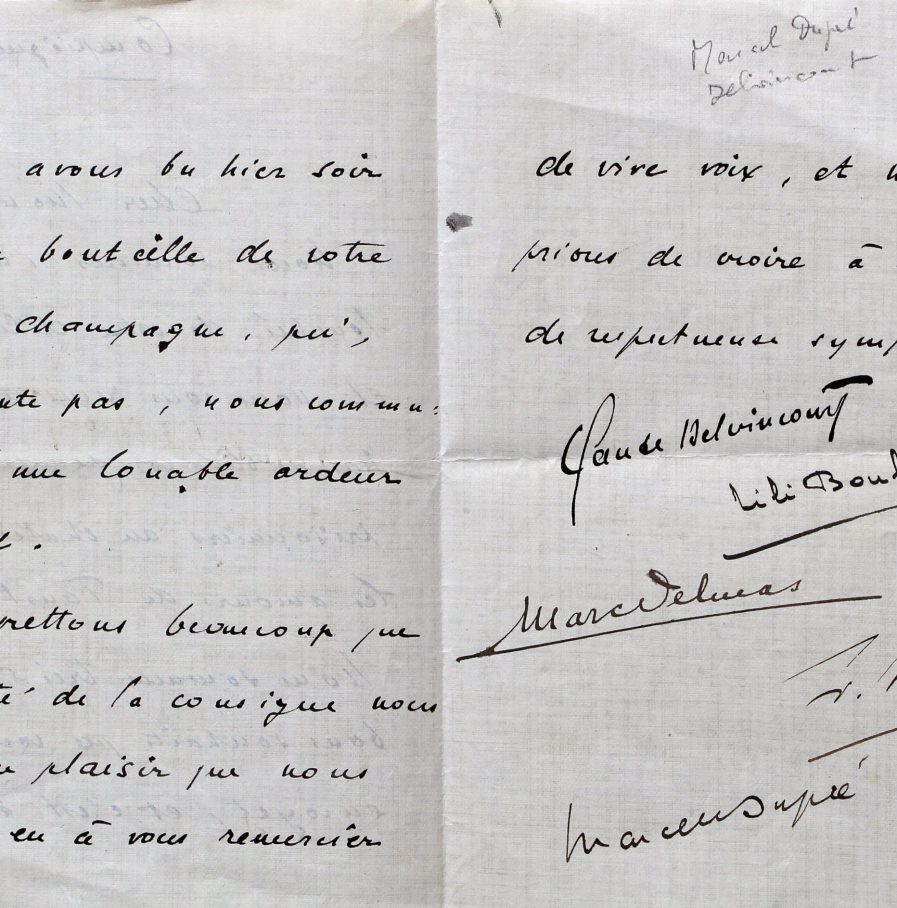 avons bu hier soir
bouteille de votre
champagne, qui,
pas, nous commu-
une louable ardeur
beaucoup que
de la consigne nous
plaisir que nous
en à vous remercier
Marcel Dupré
Delvincourt
de vive voix, et
prions de croire à
de respectueuse symp
Claude Delvincourt
Lili Boul
Marc Delmas
Marcel Dupré